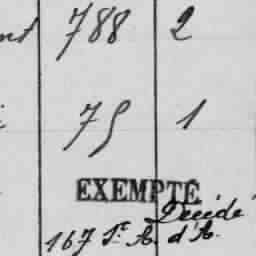 nt 788 2
i 75 1
EXEMPTÉ
Décidé
167 St A. d'A.